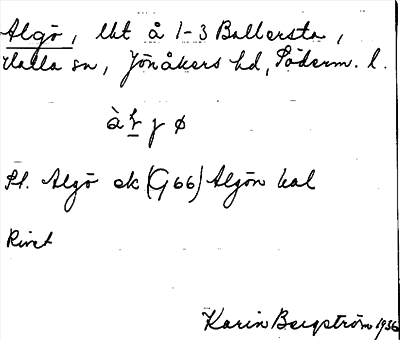 Algö, lht å 1-3 Ballersta,
Halla sn, Jönåkers hd, Söderm. l.
Pl. Algö ek (G66) Algön kal
Rivet
Karin Bergström 1936